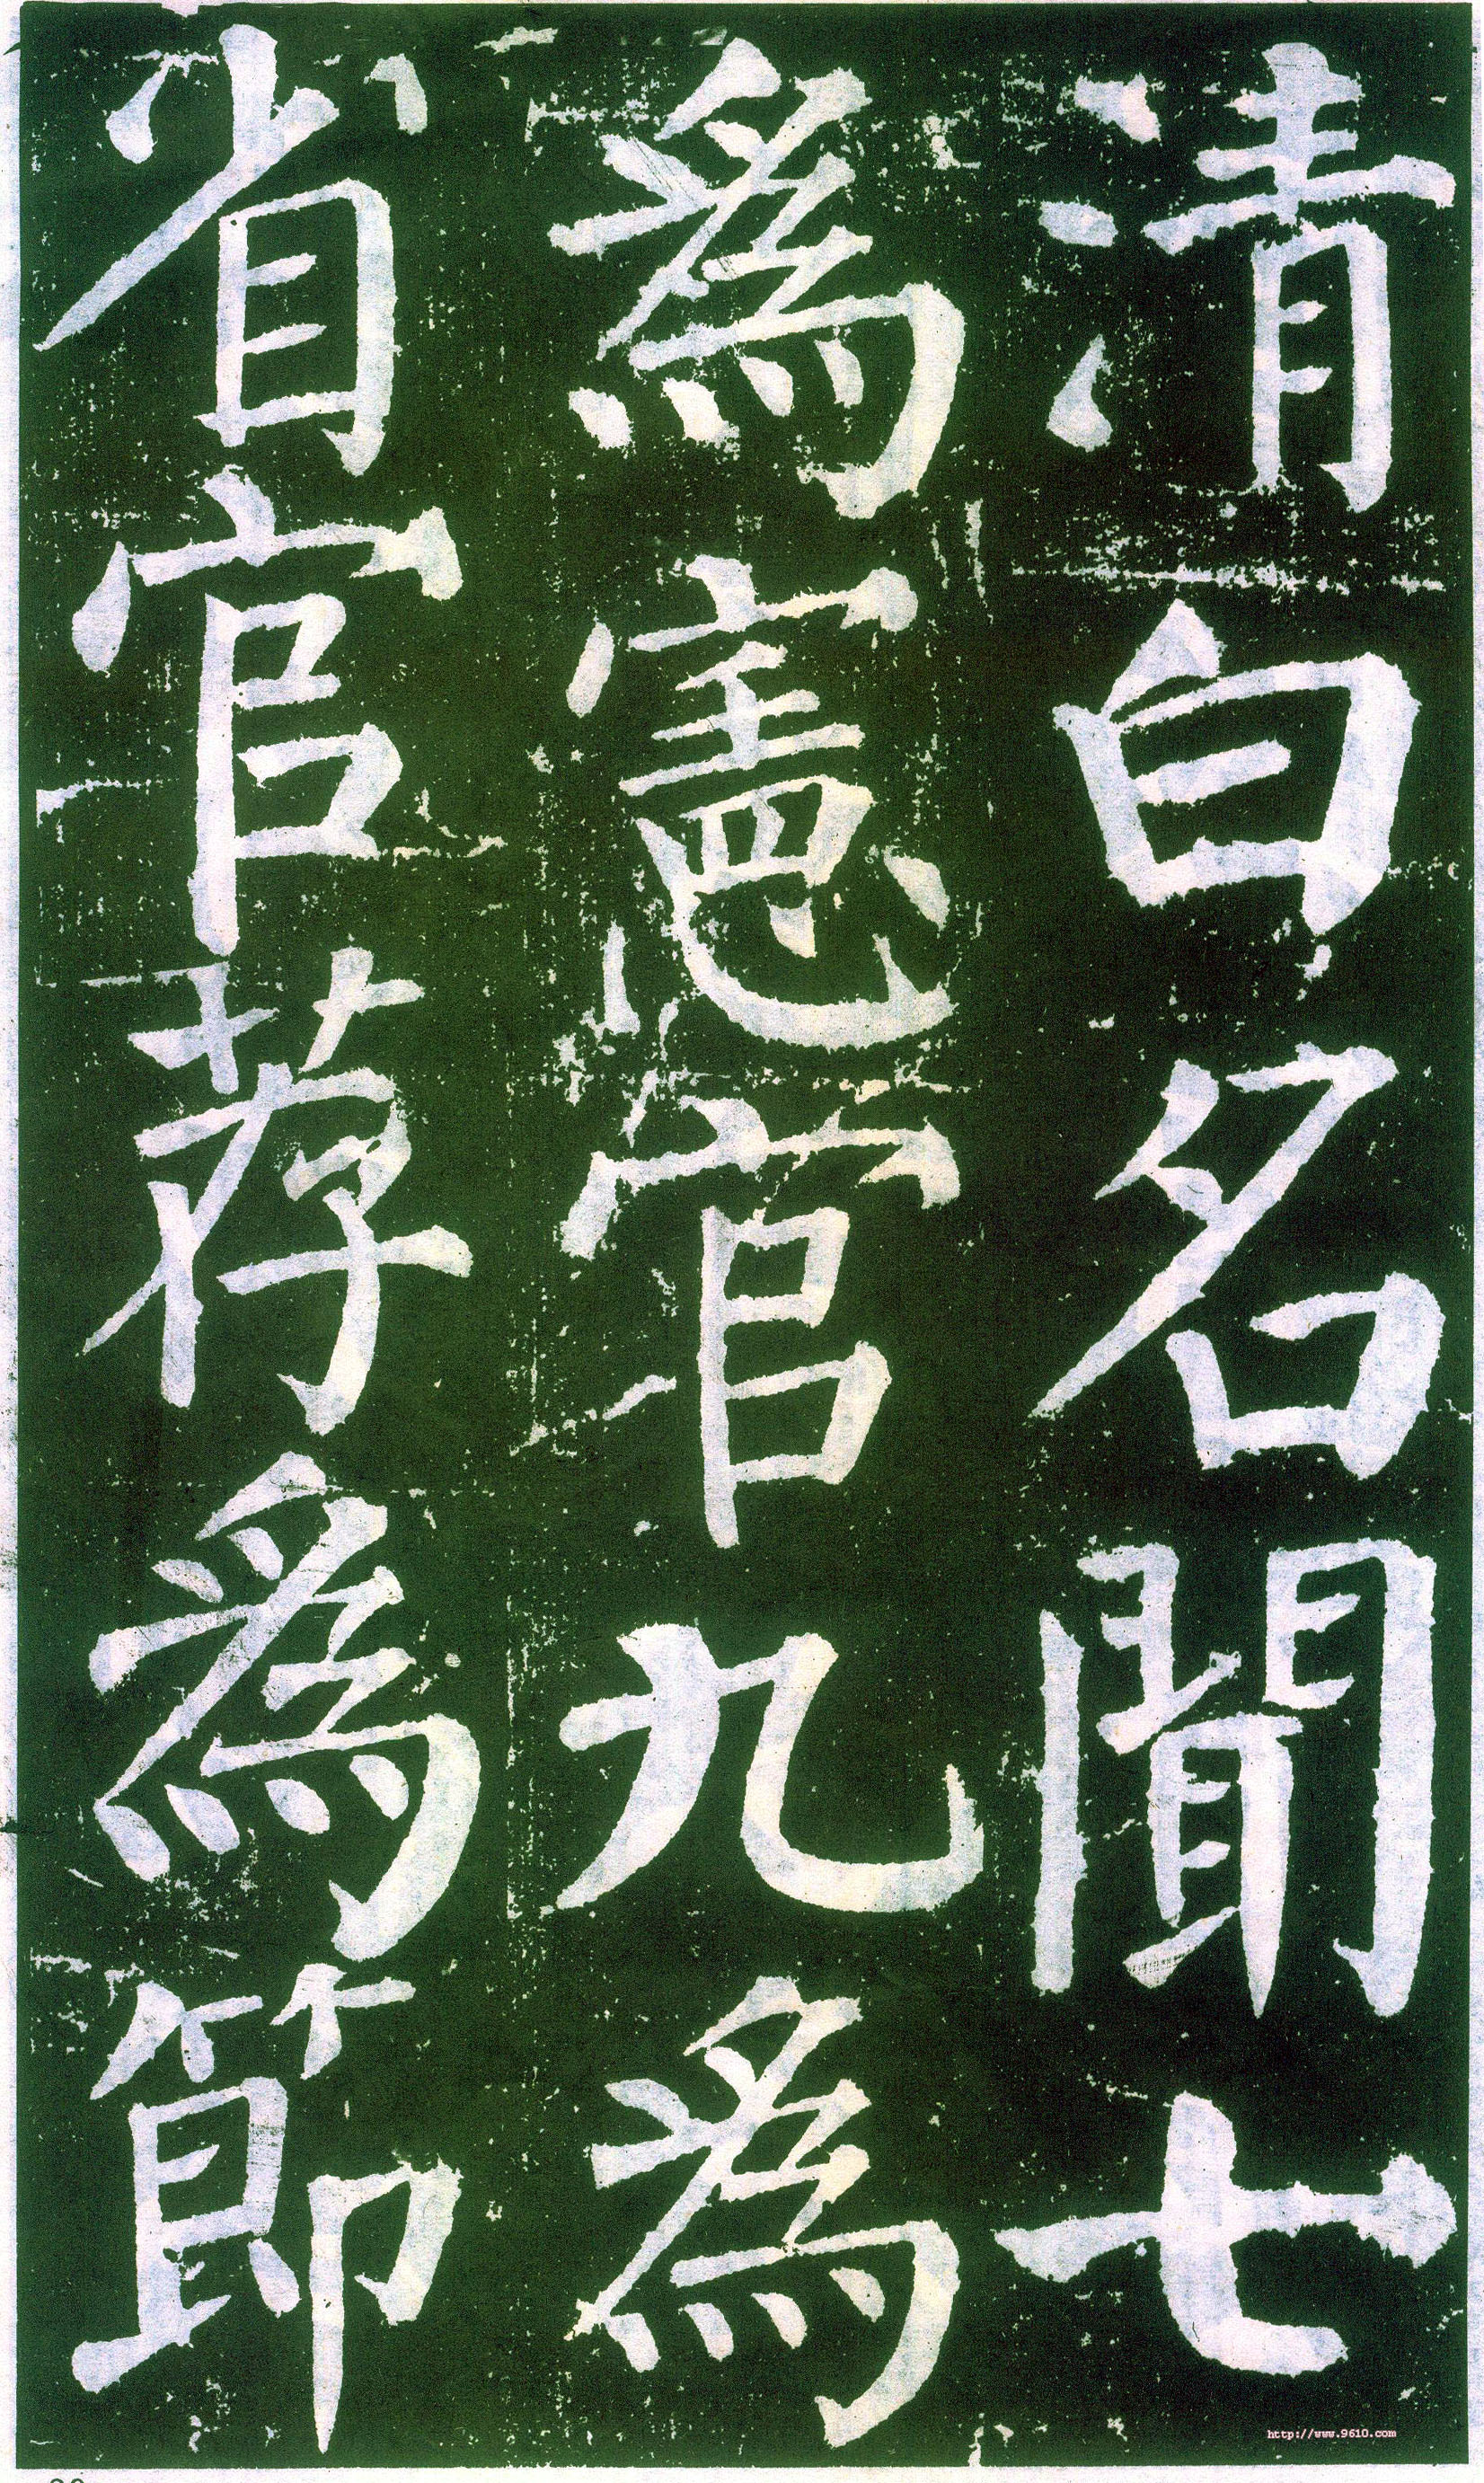 清白名聞七
為憲官九為
省官荐為節
http://www.9610.com